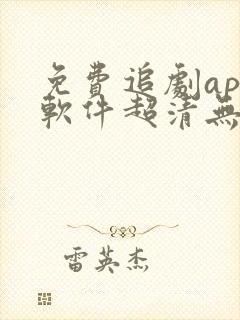 免費追劇ap
軟件超清無
雷英杰